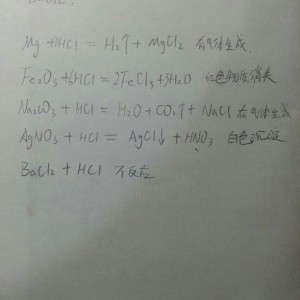 BaCl2.
Mg + 2HCl = H2↑ + MgCl2 有气体生成.
Fe2O3 + 6HCl = 2FeCl3 + 3H2O 红色物质消失
Na2CO3 + HCl = H2O + CO2↑ + NaCl 有气体生成
AgNO3 + HCl = AgCl↓ + HNO3 白色沉淀
BaCl2 + HCl 不反应